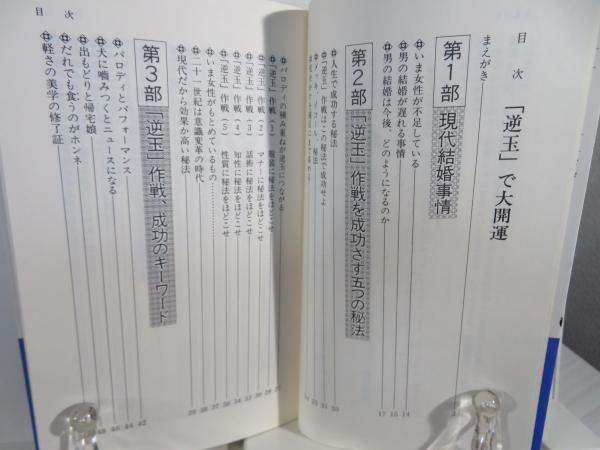 目次
「逆玉」で大開運
まえがき
第1部 現代結婚事情
いま女性が不足している 14
男の結婚が遅れる事情 15
男の結婚は今後、どのようになるのか 17
第2部 「逆玉」作戦を成功さす五つの秘法
人生で成功する秘法
「逆玉」作戦はこの秘法で成功せよ
パロディの積み重ねが逆玉につながる
「逆玉」作戦(1) 服装に秘法をほどこせ
「逆玉」作戦(2) マナーに秘法をほどこせ
「逆玉」作戦(3) 話術に秘法をほどこせ
「逆玉」作戦(4) 知性に秘法をほどこせ
「逆玉」作戦(5) 性質に秘法をほどこせ
いま女性がもとめているもの
二十一世紀は意識変革の時代
現代だから効果か高い秘法
第3部 「逆玉」作戦、成功のキーワード
パロディとパフォーマンス 42
犬に噛みつくとニュースになる 44
出もどりと帰宅娘 46
だれでも食うのがホンネ 48
軽さの美学の修了証
目次